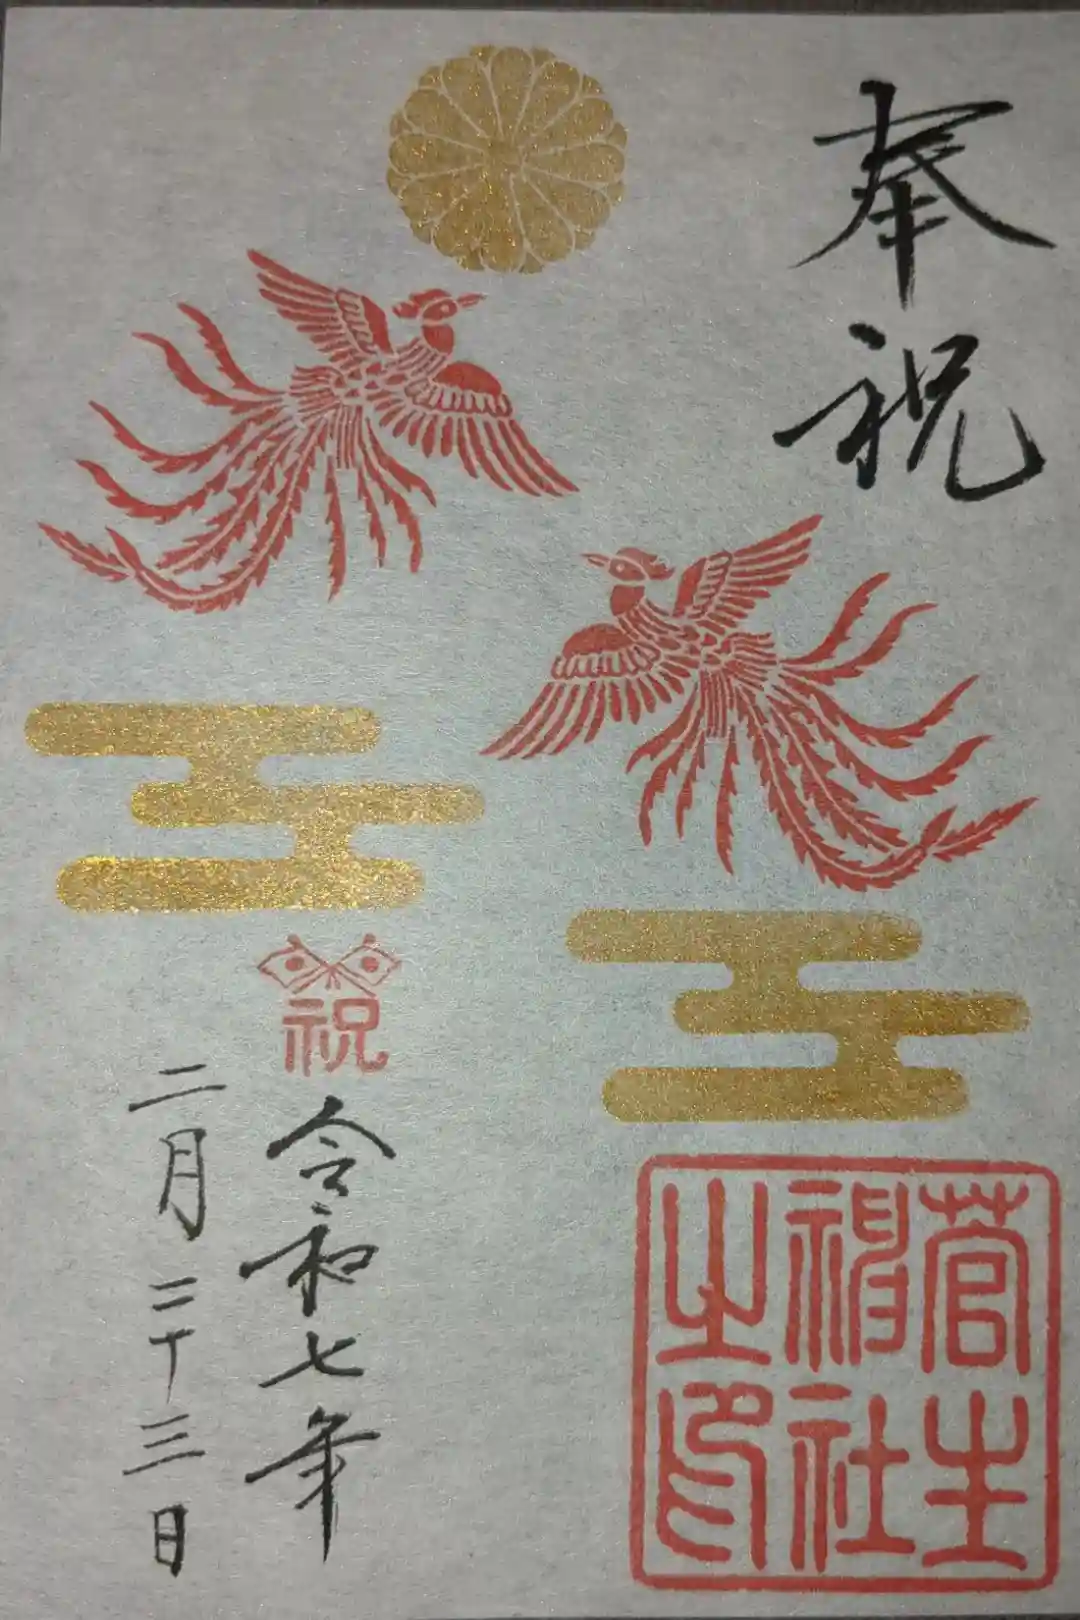 奉祝
祝
令和七年
二月二十三日
菅生
神社
之印